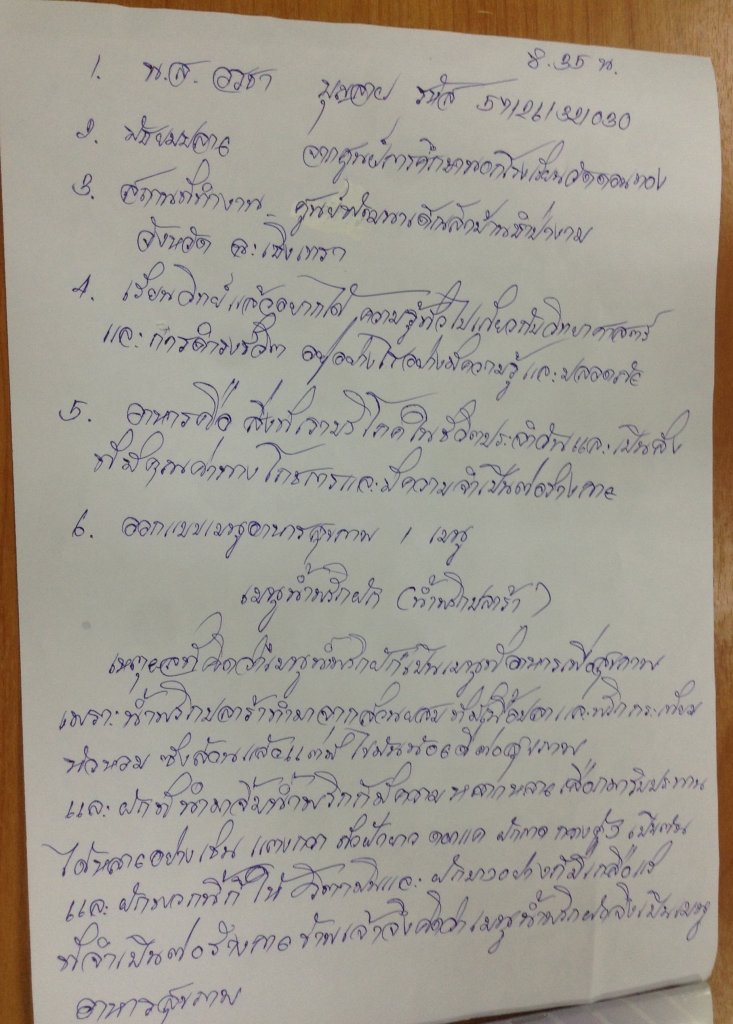 8.35 น.
1. น.ส. อรชา บุญลาย รหัส 57121132030
2. มัธยมปลาย จากศูนย์การศึกษานอกโรงเรียนวัดดอนทอง
3. สถานที่ทำงาน ศูนย์พัฒนาเด็กเล็กบ้านท่าม่วง
จังหวัด ฉะเชิงเทรา
4. เรียนวิทย์แล้วอยากได้ ความรู้ทั่วไปเกี่ยวกับวิทยาศาสตร์
และการดำรงชีวิต อยู่อย่างไรอย่างมีความรู้และปลอดภัย
5. อาหารคือ สิ่งที่เราบริโภคในชีวิตประจำวันและเป็นสิ่ง
ที่มีคุณค่าทางโภชนาการและมีความจำเป็นต่อร่างกาย
6. ออกแบบเมนูอาหารสุขภาพ 1 เมนู
เมนูน้ำพริกผัก (น้ำพริกปลาร้า)
เหตุผลที่คิดว่าเมนูน้ำพริกผักเป็นเมนูที่อาหารเพื่อสุขภาพ
เพราะน้ำพริกปลาร้าทำมาจากส่วนผสมที่มีเนื้อปลาและพริกกระเทียม
หัวหอม ซึ่งล้วนแล้วแต่มีไขมันน้อยดีต่อสุขภาพ
และผักที่นำมาจิ้มน้ำพริกก็มีความหลากหลายเลือกมารับประทาน
ได้หลายอย่างเช่น แตงกวา ถั่วฝักยาว ดอกแค ผักกาดกวางตุ้ง เป็นต้น
และผักพวกนี้ก็ให้วิตามินและผักบางอย่างก็มีเกลือแร่
ที่จำเป็นต่อร่างกาย ข้าพเจ้าจึงคิดว่าเมนูน้ำพริกผักจึงเป็นเมนู
อาหารสุขภาพ